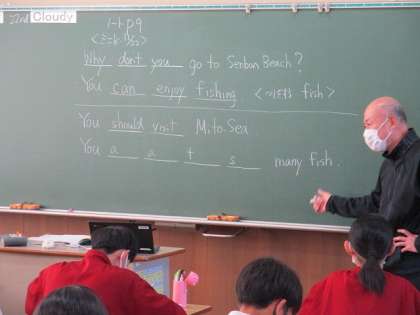 22nd Cloudy
1-1. p.9
Why don't you go to Senbon Beach?
You can enjoy fishing. fish>
You should visit Mito Sea
You a a t s many fish.